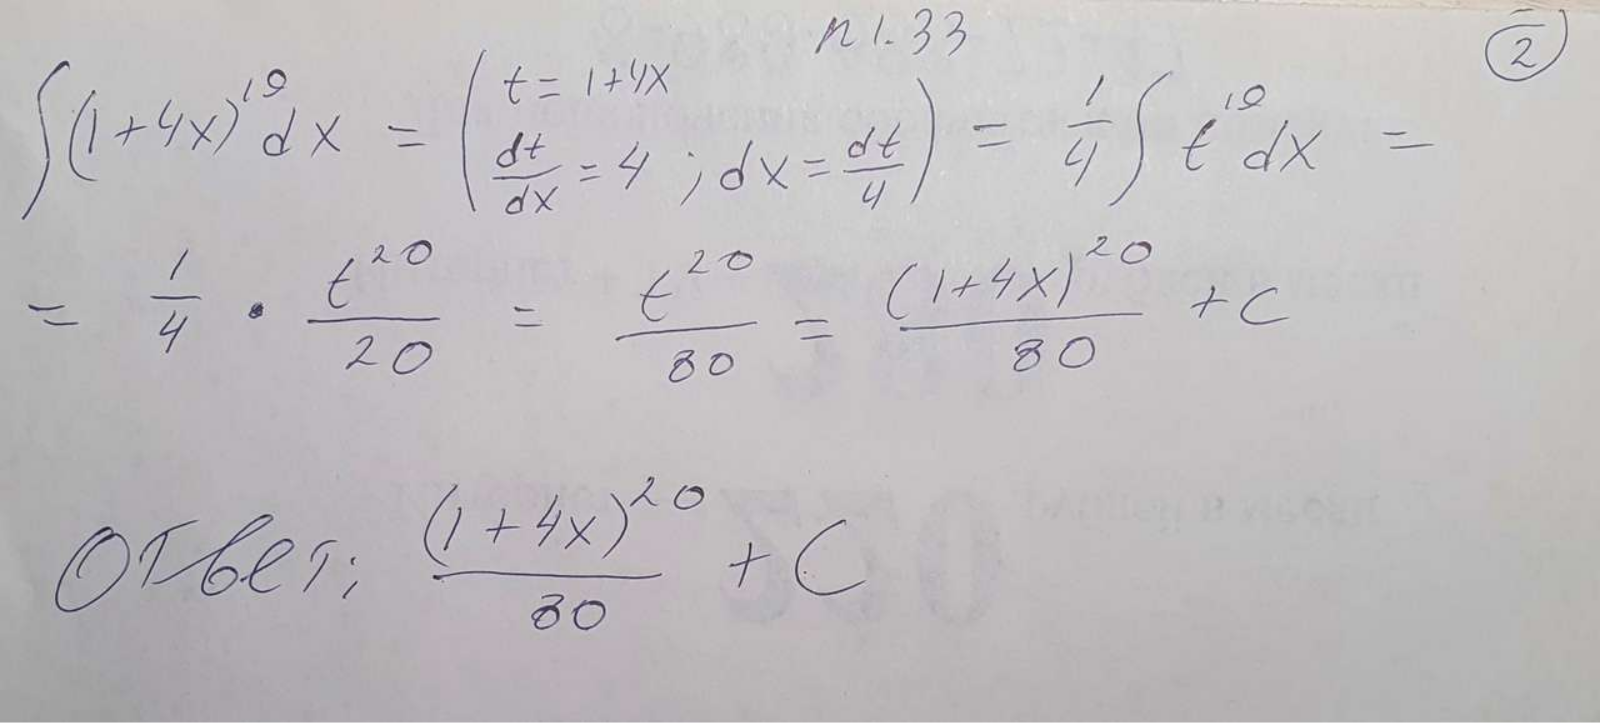 n 1.33
②
∫(1+4x)^19 dx = (t = 1+4x; dt/dx = 4 ; dx = dt/4) = 1/4 ∫ t^19 dx =
= 1/4 · t^20/20 = t^20/80 = (1+4x)^20/80 + C
Ответ: (1+4x)^20/80 + C